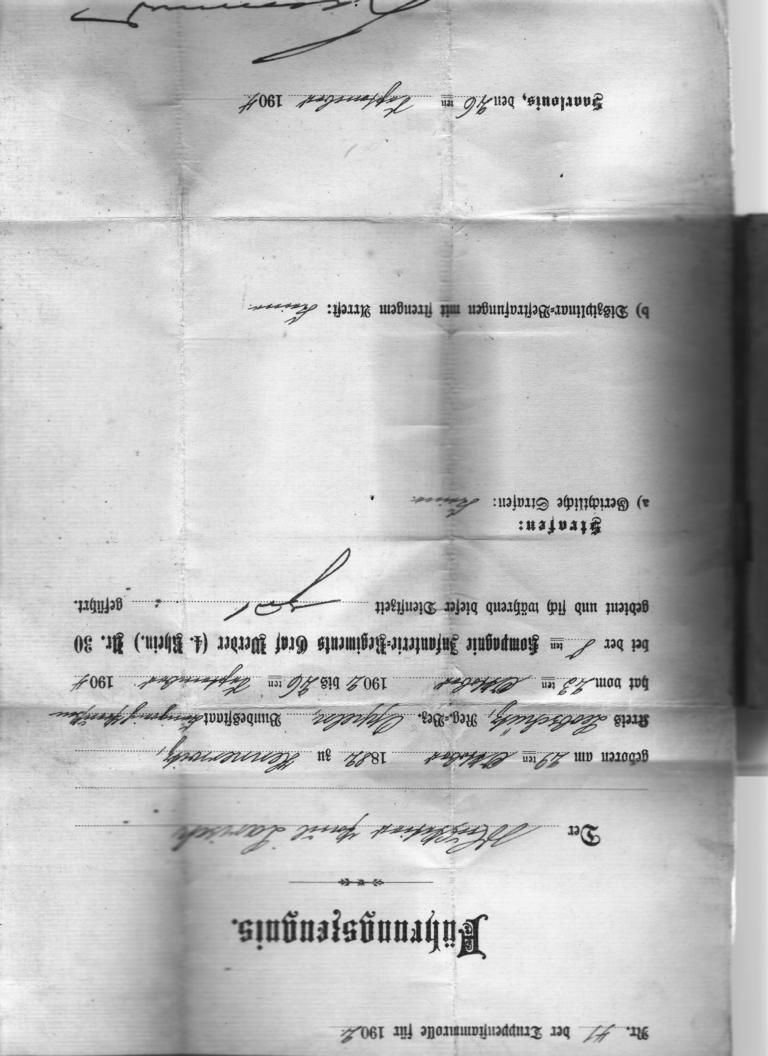 Nr. 41 der Truppenstammrolle für 1902
Führungszeugnis.
Der Musketier Emil Larisch
geboren am 29ten Oktober 1882 zu
Kreis Leobschütz, Reg.-Bez. Oppeln, Bundesstaat Königreich Preußen
hat vom 23ten Oktober 1902 bis 26ten September 1904
bei der 8ten Kompagnie Infanterie-Regiments Graf Werder (4. Rhein.) Nr. 30
gedient und sich während dieser Dienstzeit gut geführt.
Strafen:
a) Gerichtliche Strafen: Keine
b) Disziplinar-Bestrafungen mit strengem Arrest: Keine
Saarlouis, den 26ten September 1904